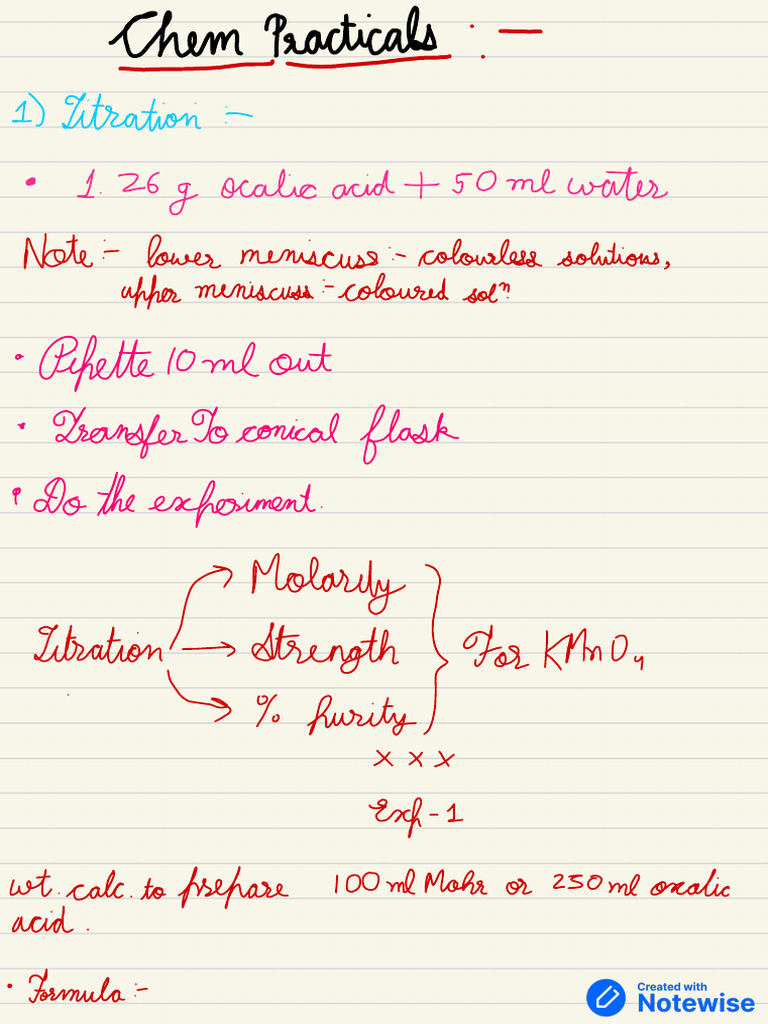 Chem Practicals :-
1) Titration :-
• 1.26 g ocalic acid + 50 ml water
Note :- lower meniscuss :- colourless solutions,
upper meniscuss :- coloured solⁿ
• Pipette 10 ml out
• Transfer To conical flask
• Do the experiment.
→ Molarity
Titration → Strength } For KMnO₄
→ % purity
x x x
Exp - 1
wt. calc. to prepare 100 ml Mohr or 250 ml oxalic
acid.
• Formula :-
Created with
Notewise